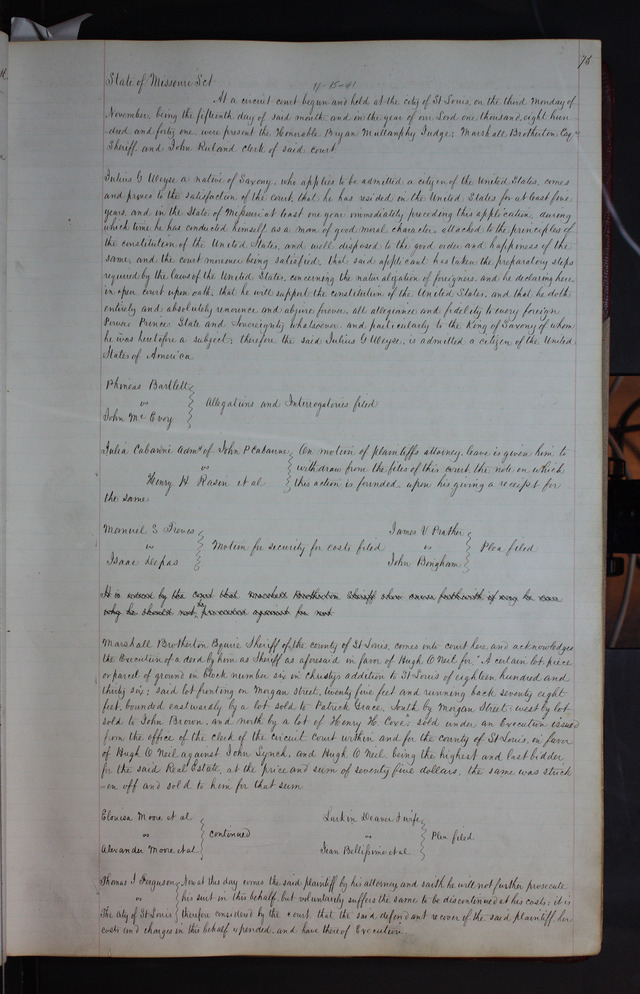 76
State of Missouri Sct
11-15-41
At a circuit court begun and held at the city of St Louis, on the third Monday of
November, being the fifteenth day of said month and in the year of our Lord one thousand, eight hun
dred and forty one, were present the Honorable Bryan Mullanphy Judge; Marshall Brotherton Esqr
Sheriff and John Ruland clerk of said court
Julius G Weyse a native of Saxony, who applies to be admitted a citizen of the United States, comes
and proves to the satisfaction of the court that he has resided in the United States for at least five
years, and in the State of Missouri at least one year immediately preceding this application, during
which time he has conducted himself as a man of good moral character, attached to the principles of
the constitution of the United States, and well disposed to the good order and happiness of the
same, and the court moreover being satisfied, that said applicant has taken the preparatory steps
required by the laws of the United States, concerning the naturalization of foreigners, and he declaring here
in open court upon oath, that he will support the constitution of the United States, and that he doth
entirely and absolutely renounce and abjure forever, all allegiance and fidelity to every foreign
Power Prince State and Sovereignty whatsoever and particularly to the King of Saxony of whom
he was heretofore a subject; therefore the said Julius G Weyse, is admitted a citizen of the United
States of America
Phineas Bartlett
vs Allegations and Interrogatories filed
John Mc Evoy
Julia Cabanné Admx of John P Cabanne On motion of plaintiffs attorney leave is given him to
vs withdraw from the files of this court, the note on which
Henry H Rasin et al this action is founded upon his giving a receipt for
the same
Manuel S James V Prather
vs Motion for security for costs filed vs Plea filed
Isaac John Bingham
It is ordered by the court that Marshall Brotherton Sheriff show cause forthwith if any he can
why he should not be proceeded against for not
Marshall Brotherton Esquire Sheriff of the county of St Louis, comes into court here, and acknowledges
the Execution of a deed by him as Sheriff as aforesaid in favor of Hugh O Neil for, "A certain lot, piece
or parcel of ground in block number six in christys addition to St Louis of eighteen hundred and
thirty six; said lot fronting on Morgan street, twenty five feet and running back seventy eight
feet, bounded eastwardly by a lot sold to Patrick Grace, South by Morgan Street; west by lot
sold to John Brown, and north by a lot of Henry H Cove" sold under an Execution issued
from the office of the clerk of the circuit court within and for the county of St Louis, in favor
of Hugh O Neil against John Lynch, and Hugh O Neil, being the highest and last bidder,
for the said Real Estate, at the price and sum of seventy five dollars, the same was struck
on off and sold to him for that sum
Elouisa Moore et al Larkin Deaver & wife
vs continued vs Plea filed
Alexander Moore et al Jean Bellissime et al
Thomas J Ferguson Now at this day comes the said plaintiff by his attorney and saith he will not further prosecute
vs his suit in this behalf, but voluntarily suffers the same to be discontinued at his costs; it is
The city of St Louis therefore considered by the court, that the said defendant recover of the said plaintiff, her
costs and charges in this behalf expended, and have thereof Execution.